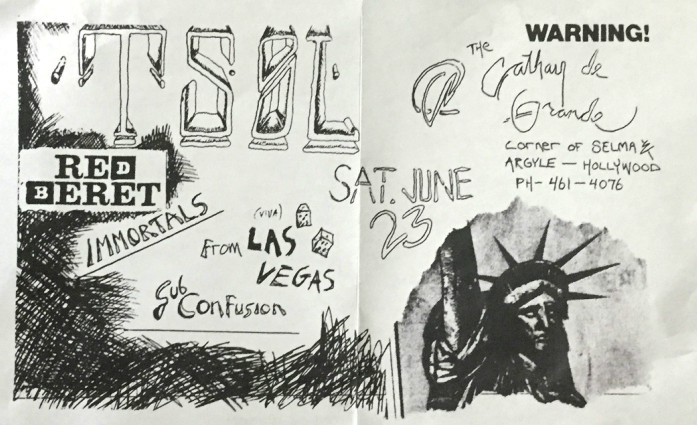 TSOL
RED
BERET
IMMORTALS
(VIVA)
FROM LAS
VEGAS
Sub
Confusion
WARNING!
@ THE
Cathay de
Grande
CORNER OF SELMA &
ARGYLE — HOLLYWOOD
PH- 461-4076
SAT. JUNE
23